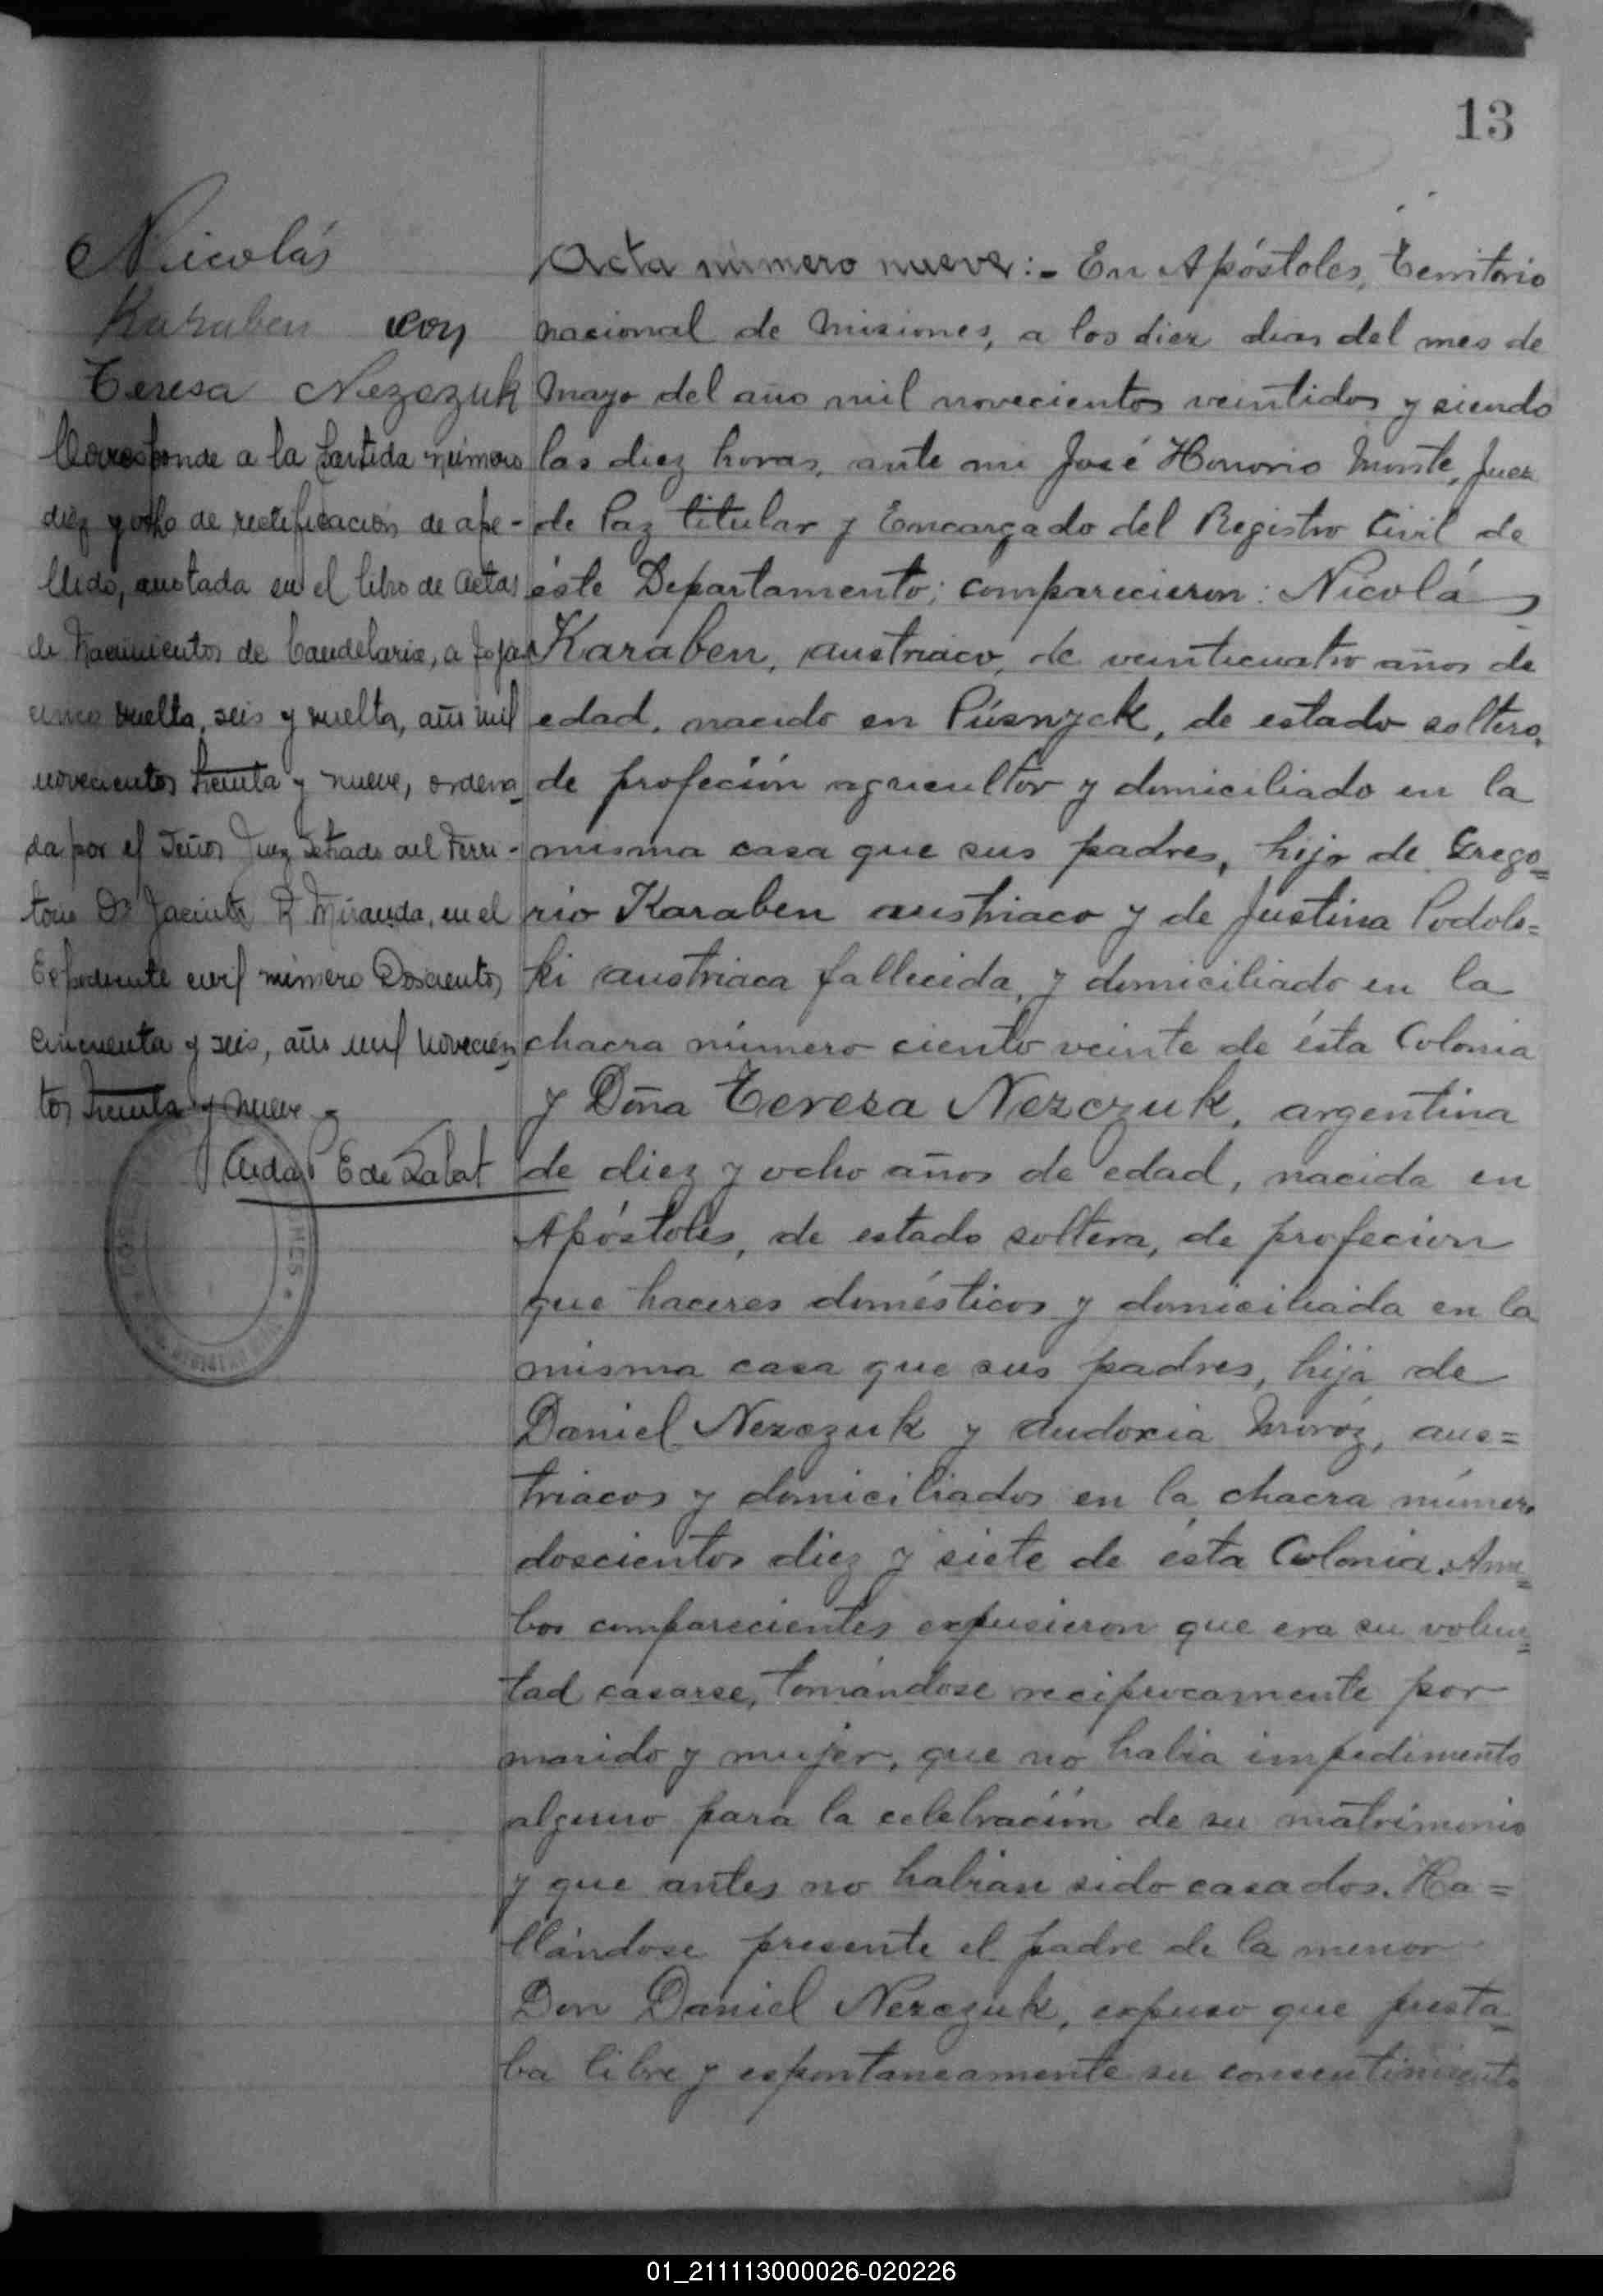 13
Nicolás
Karaben con
Teresa Nezczuk
Corresponde a la Partida número
diez y ocho de rectificación de ape-
llido, anotada en el libro de Actas
de Nacimientos de Candelaria, a fojas
cinco vuelta, seis y vuelta, año mil
novecientos treinta y nueve, ordena-
da por el Señor Juez Letrado del Terri-
torio Dr Jacinto R Miranda, en el
Expediente civil número Doscientos
cincuenta y seis, año mil novecien-
tos treinta y nueve
Acta número nueve:- En Apóstoles, Territorio
nacional de Misiones, a los diez dias del mes de
Mayo del año mil novecientos veintidos y siendo
las diez horas, ante mi José Honorio Monte, Juez
de Paz titular y Encargado del Registro Civil de
éste Departamento; comparecieron: Nicolás
Karaben, austriaco, de veinticuatro años de
edad, nacido en Púsnyck, de estado soltero,
de profeción agricultor y domiciliado en la
misma casa que sus padres, hijo de Grego=
rio Karaben austriaco y de Justina Podols=
ki austriaca fallecida, y domiciliado en la
chacra número ciento veinte de ésta Colonia
y Doña Teresa Nezczuk, argentina
de diez y ocho años de edad, nacida en
Apóstoles, de estado soltera, de profecion
que haceres domésticos y domiciliada en la
misma casa que sus padres, hija de
Daniel Nezczuk y Audoxia Moroz, aus=
triacos y domiciliados en la chacra número
doscientos diez y siete de ésta Colonia. Am=
bos comparecientes expusieron que era su volun=
tad casarse, tomándose reciprocamente por
marido y mujer, que no habia impedimento
alguno para la celebración de su matrimonio
y que antes no habian sido casados. Ha=
llándose presente el padre de la menor
Don Daniel Nezczuk, expuso que presta=
ba libre y espontaneamente su consentimiento
01_211113000026-020226